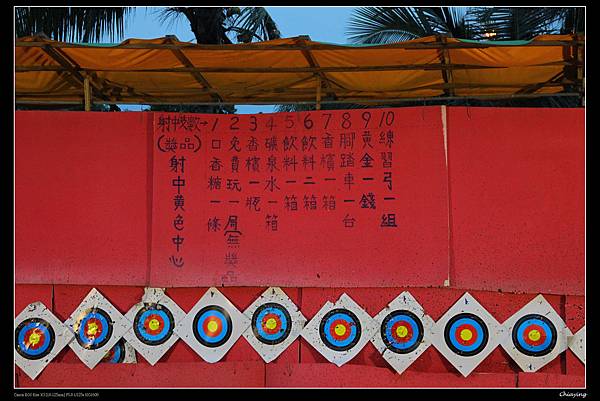 射中支數→
(獎品)
射中黄色中心
1口香糖一條
2免費玩一局(無獎品)
3香檳一瓶
4礦泉水一箱
5飲料一箱
6飲料二箱
7香檳一箱
8腳踏車一台
9黄金一錢
10練習弓一組
Chiaying